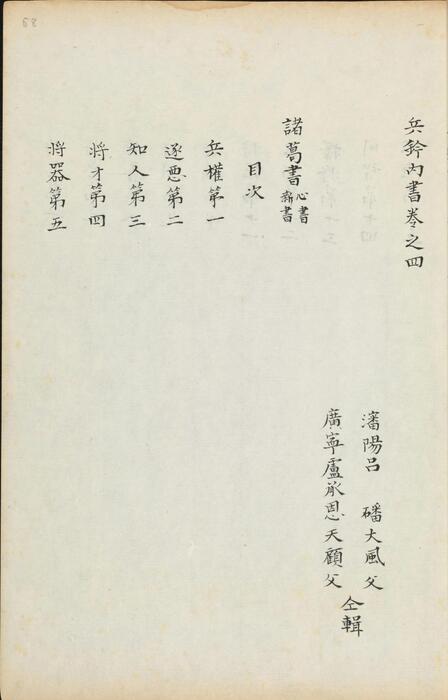 兵鈐內書卷之四
瀋陽呂 磻大風父
廣寧盧承恩天顧父
仝輯
諸葛書 心書 新書
目次
兵權第一
逐惡第二
知人第三
將才第四
將器第五
68